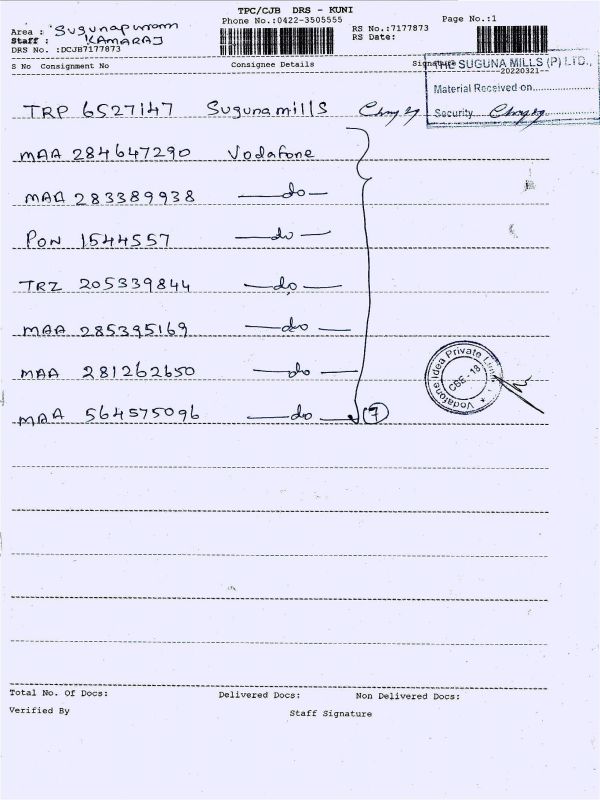 TPC/CJB DRS - KUNI
Phone No.:0422-3505555
Page No.:1
Area : Sugunapuram
Staff : KAMARAJ
DRS No. :DCJB7177873
RS No.:7177873
RS Date:
S No Consignment No Consignee Details Signature
THE SUGUNA MILLS (P) LTD.,
20220321
Material Received on
Security
TRP 6527147 Suguna mills
MAA 284647290 Vodafone
MAA 283389938 —do—
PON 1544557 —do—
TRZ 205339844 —do—
MAA 285395169 —do—
MAA 281262650 —do—
MAA 564575096 —do— 7
Vodafone Idea Private Limited
CBE - 18
Total No. Of Docs: Delivered Docs: Non Delivered Docs:
Verified By Staff Signature